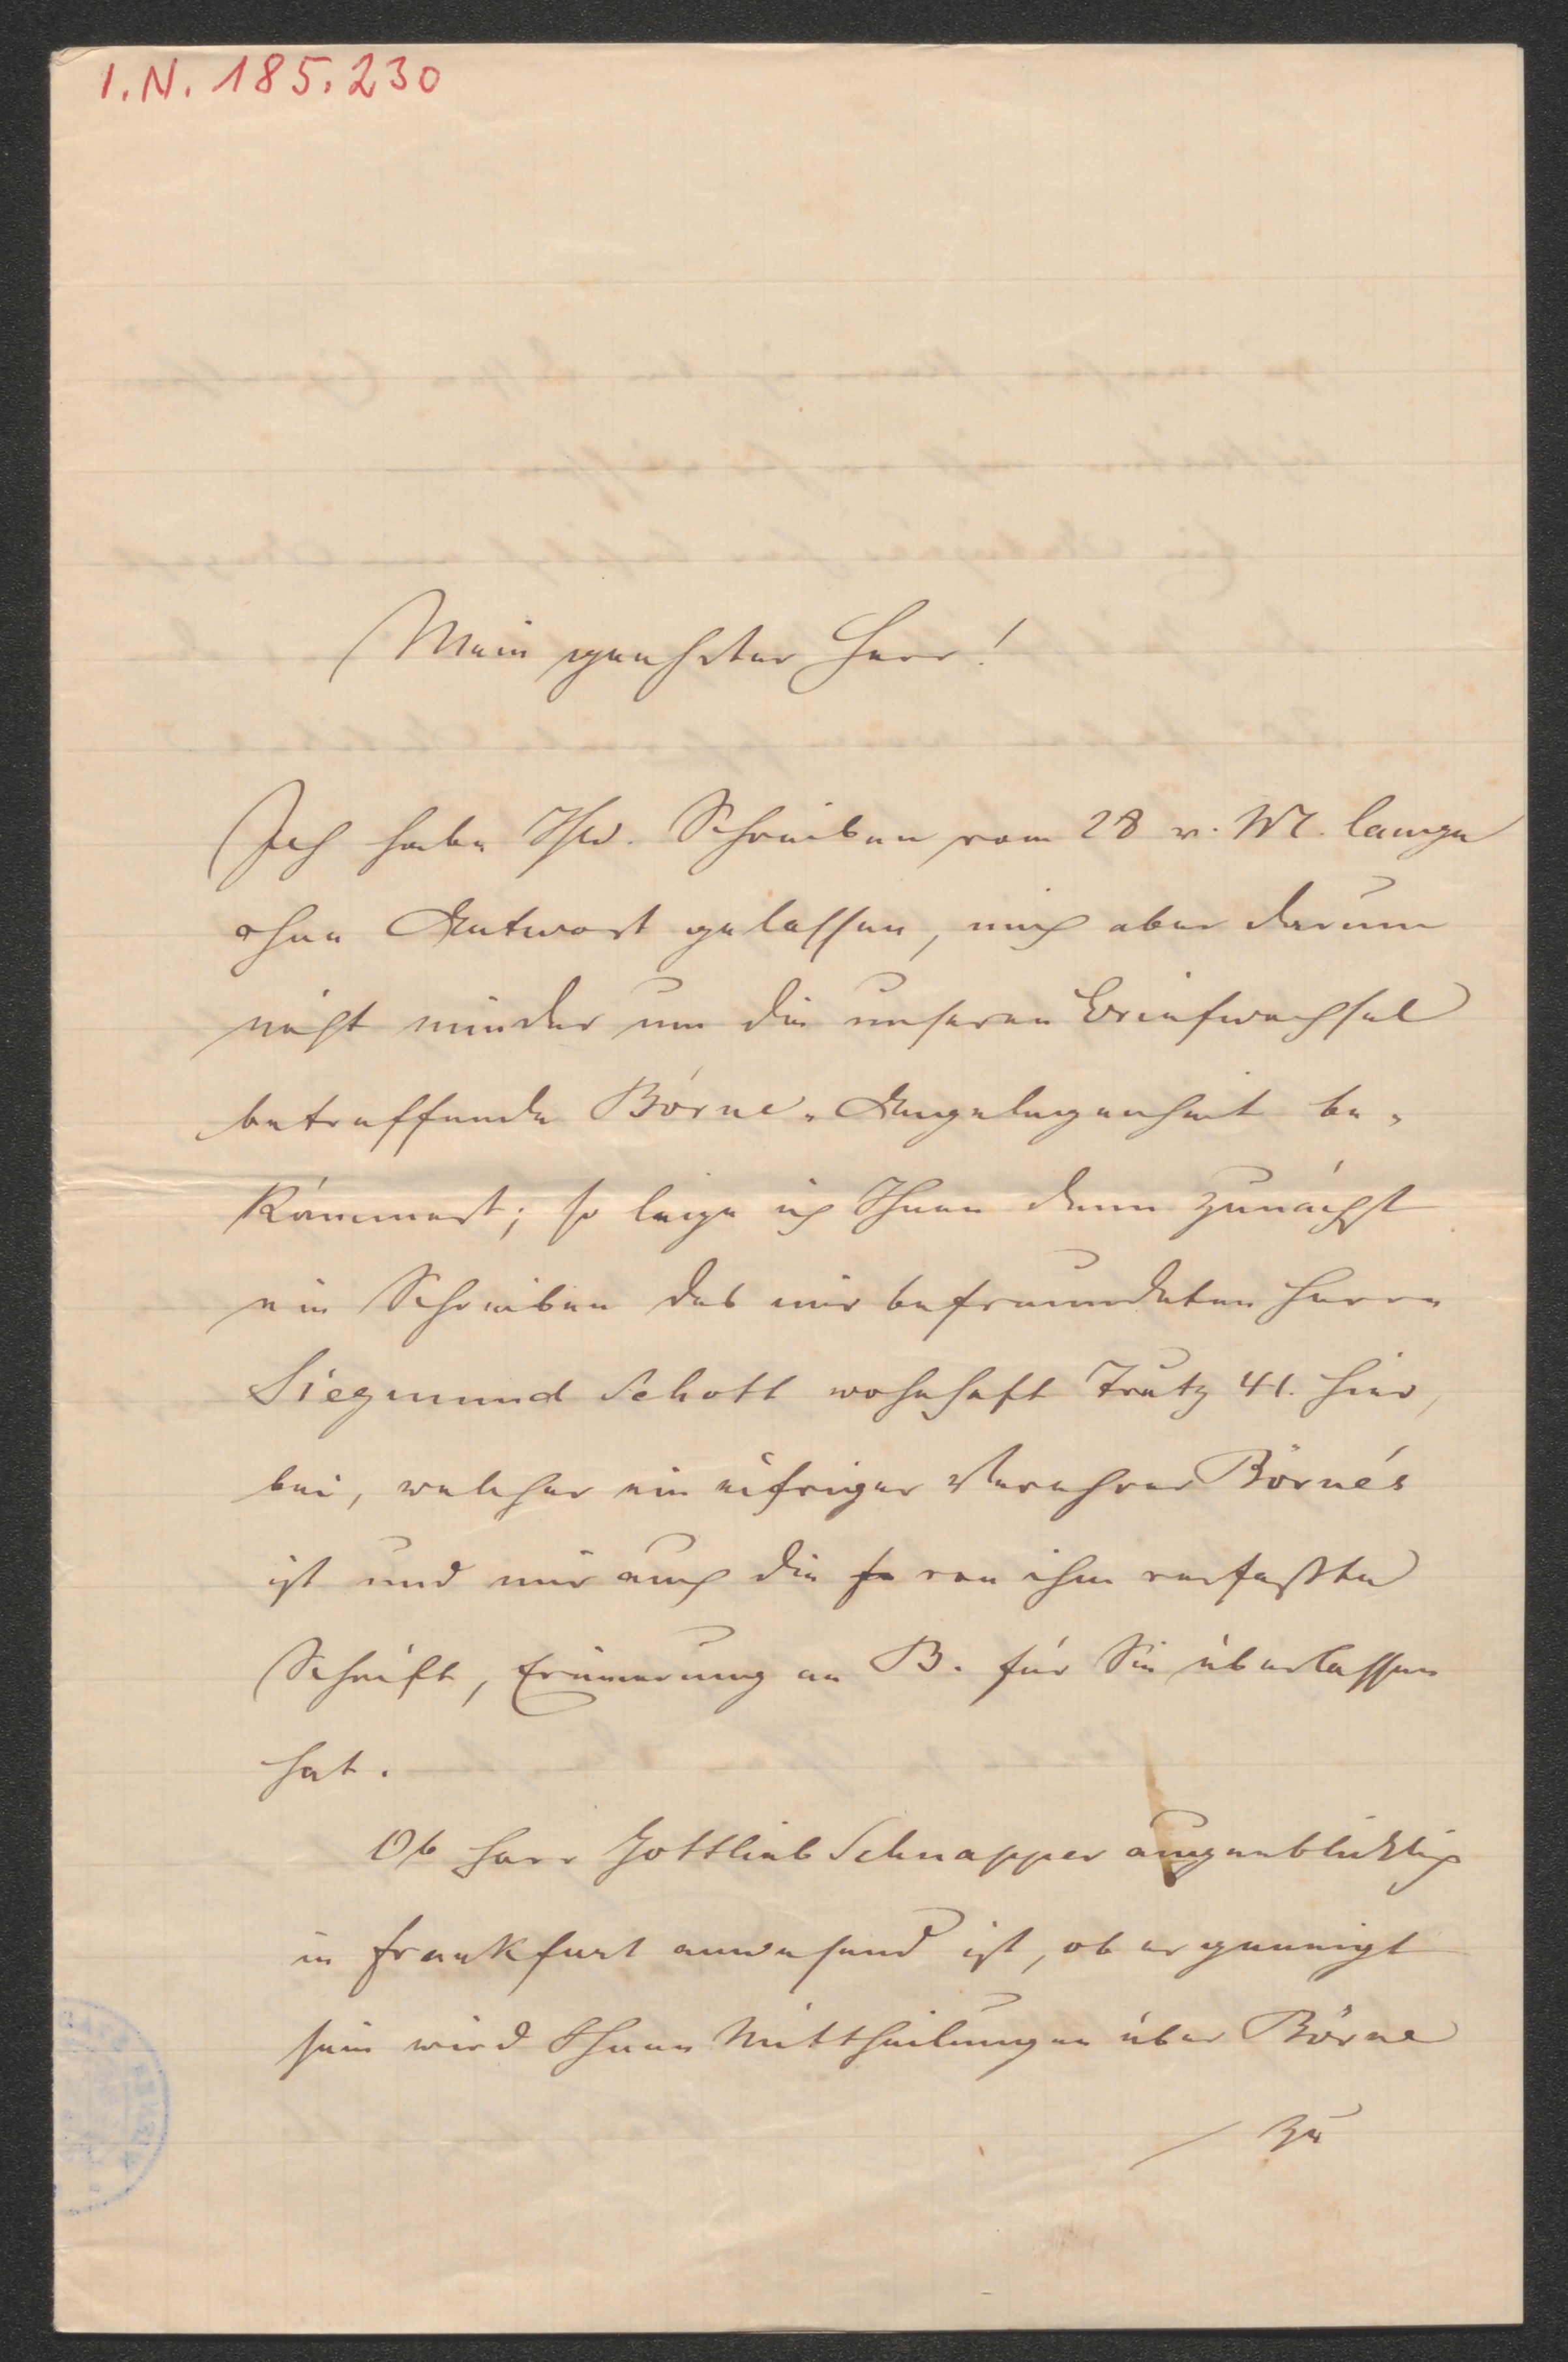 I.N. 185.230
Mein geehrter Herr!
Ich habe Ihr. Schreiben vom 28 v. M. lange
ohne Antwort gelassen, mich aber darum
nicht minder um die unseren Briefwechsel
betreffende Börne-Angelegenheit be-
kümmert; so lege ich Ihnen denn zunächst
ein Schreiben des mir befreundeten Herrn
Siegmund Schott wohnhaft Trutz 41. hier,
bei, welcher ein eifriger Verehrer Börne's
ist und mir auch die von ihm verfaßte
Schrift, Erinnerung an B. für Sie überlassen
hat.
Ob Herr Gottlieb Schnapper augenblicklich
in Frankfurt anwesend ist, ob er geneigt
sein wird Ihnen Mittheilungen über Börne
zu